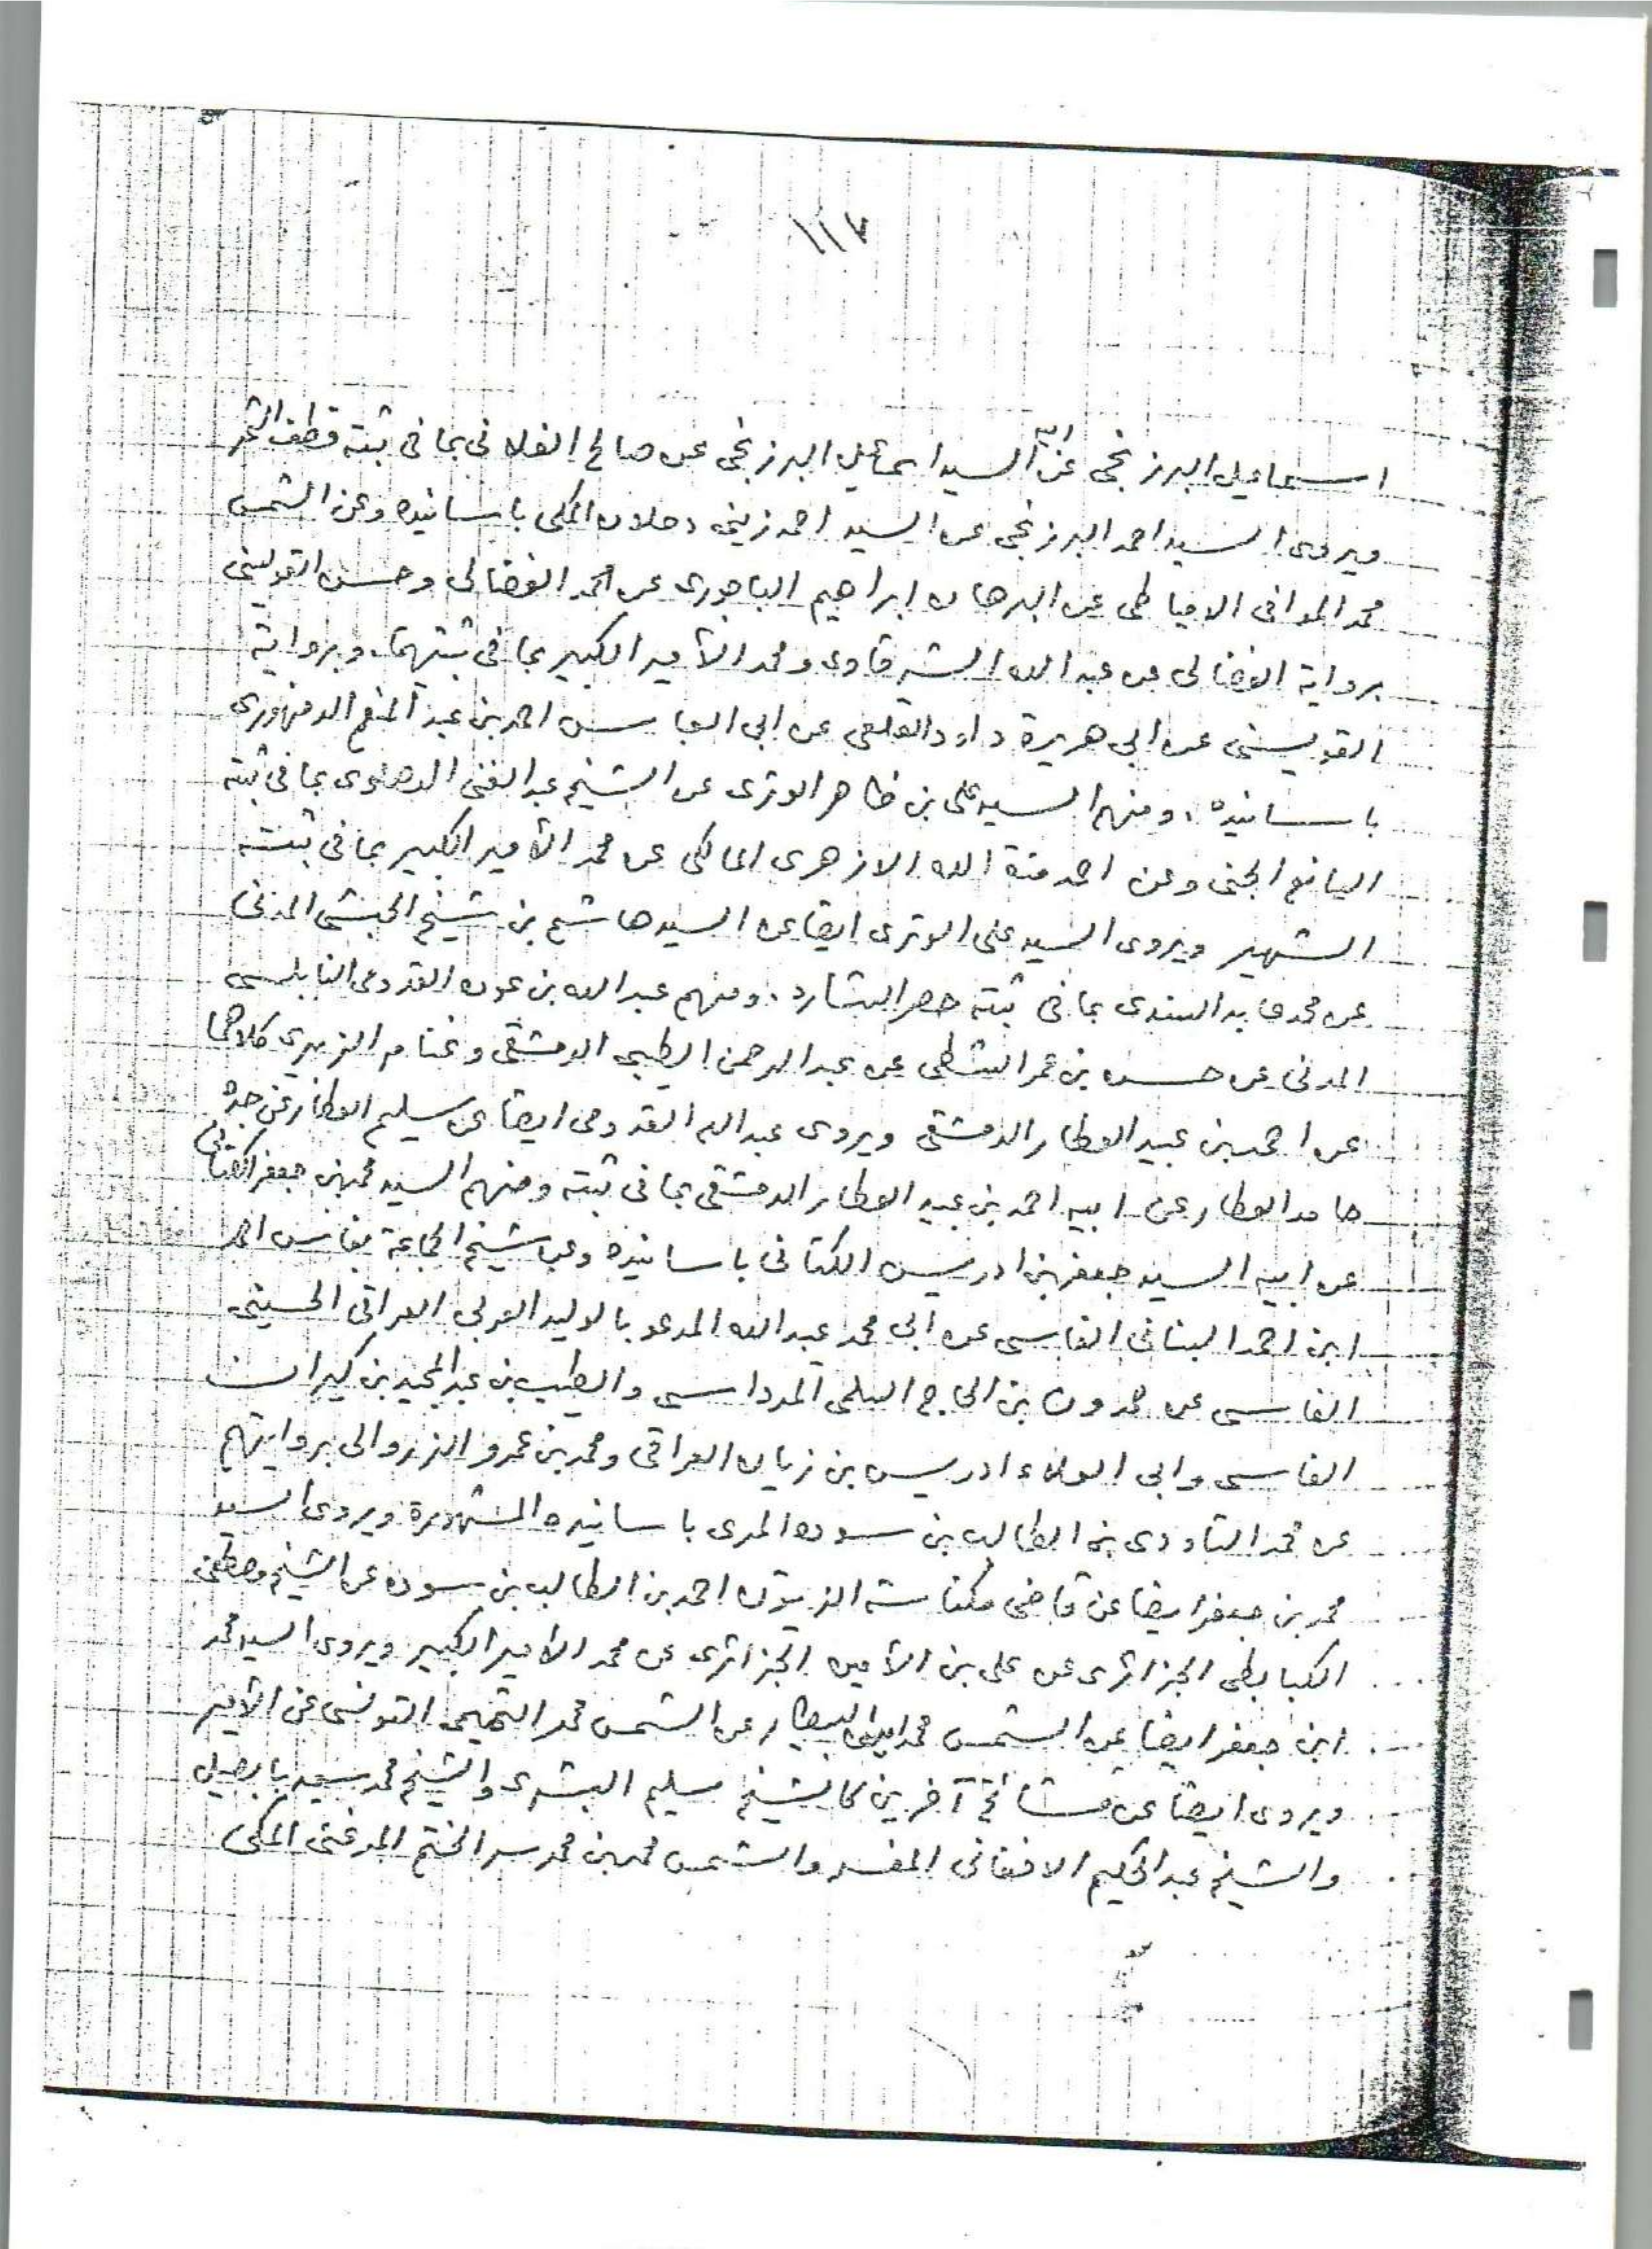 ١١٧
اسماعيل البرزنجى عن ابيه السيد اسماعيل البرزنجى عن صالح الفلانى بما فى ثبته قطف الثمر
ويروى السيد احمد البرزنجى عن السيد احمد زينى دحلان المكى باسانيده وعن الشمس
محمد الموافى الدمياطى عن البرهان ابراهيم الباجورى عن محمد الفضالى وحسن القويسنى
برواية الفضالى عن عبد الله الشرقاوى ومحمد الأمير الكبير بما فى ثبتيهما، وبرواية
القويسنى عن ابى هريرة داود القلعى عن ابى العباس احمد بن عبد المنعم الدمنهورى
باسانيده، ومنهم السيد على بن ظاهر الوترى عن الشيخ عبد الغنى الدهلوى بما فى ثبته
اليانع الجنى وعن احمد منة الله الازهرى المالكى عن محمد الأمير الكبير بما فى ثبته
الشهير ويروى السيد على الوترى ايضا عن السيد هاشم بن شيخ الحبشى المدنى
عن محمد عابد السندى بما فى ثبته حصر الشارد، ومنهم عبد الله بن عوده القدومى النابلسى
المدنى عن حسن بن عمر الشطى عن عبد الرحمن الطيبى الدمشقى وغنام الزبيرى كلاهما
عن احمد بن عبيد العطار الدمشقى ويروى عبد الله القدومى ايضا عن سليم العطار عن جده
حامد العطار عن ابيه احمد بن عبيد العطار الدمشقى بما فى ثبته ومنهم السيد محمد بن جعفر الكتانى
عن ابيه السيد جعفر بن ادريس الكتانى باسانيده وعن شيخ الجماعة بفاس احمد
ابن احمد البنانى الفاسى عن ابى محمد عبد الله المدعو بالوليد العربى العراقى الحسينى
الفاسى عن حمدون بن الحاج السلمى المرداسى والطيب بن عبد المجيد بن كيران
الفاسى وابى العلاء ادريس بن زيان العراقى ومحمد بن عمرو الزروالى بروايتهم
عن محمد التاودى بن الطالب بن سوده المرى باسانيده المشهورة ويروى السيد
محمد بن جعفر ايضا عن قاضى مكناسة الزيتون احمد بن الطالب بن سوده عن الشيخ مصطفى
الكبابطى الجزائرى عن على بن الأمين الجزائرى عن محمد الامير الكبير ويروى السيد محمد
ابن جعفر ايضا عن الشمس محمد البيطار عن الشمس محمد التميمى التونسى عن الأمير
ويروى ايضا عن مشائخ آخرين كالشيخ سليم البشرى والشيخ محمد سعيد بابصيل
والشيخ عبد الحكيم الافغانى المفسر والشمس محمد بن محمد سر الختم المرغنى المكى